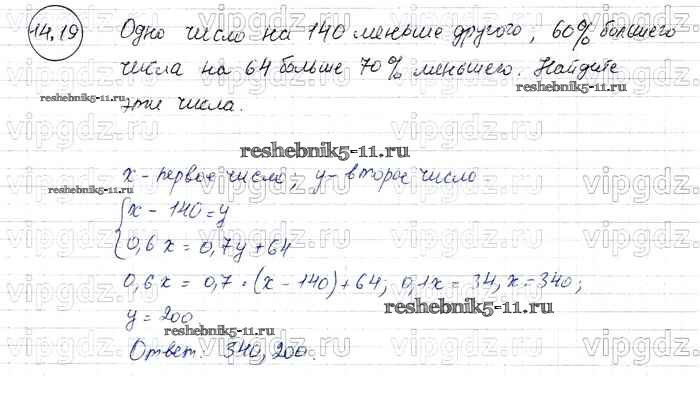 14.19 Одно число на 140 меньше другого, 60% большего
числа на 64 больше 70% меньшего. Найдите
эти числа.
reshebnik5-11.ru
reshebnik5-11.ru
x - первое число; y - второе число
reshebnik5-11.ru
{ x - 140 = y
0,6x = 0,7y + 64
0,6x = 0,7 · (x - 140) + 64; 0,1x = 34, x = 340;
reshebnik5-11.ru
y = 200
reshebnik5-11.ru
Ответ: 340, 200.
vipgdz.ru vipgdz.ru vipgdz.ru vipgdz.ru